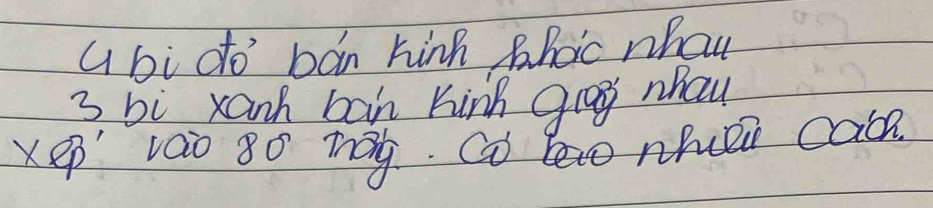 4 bi đỏ bán kính khác nhau
3 bi xanh bán kính giống nhau
xếp vào 8 ô trống. Có bao nhiêu cách.